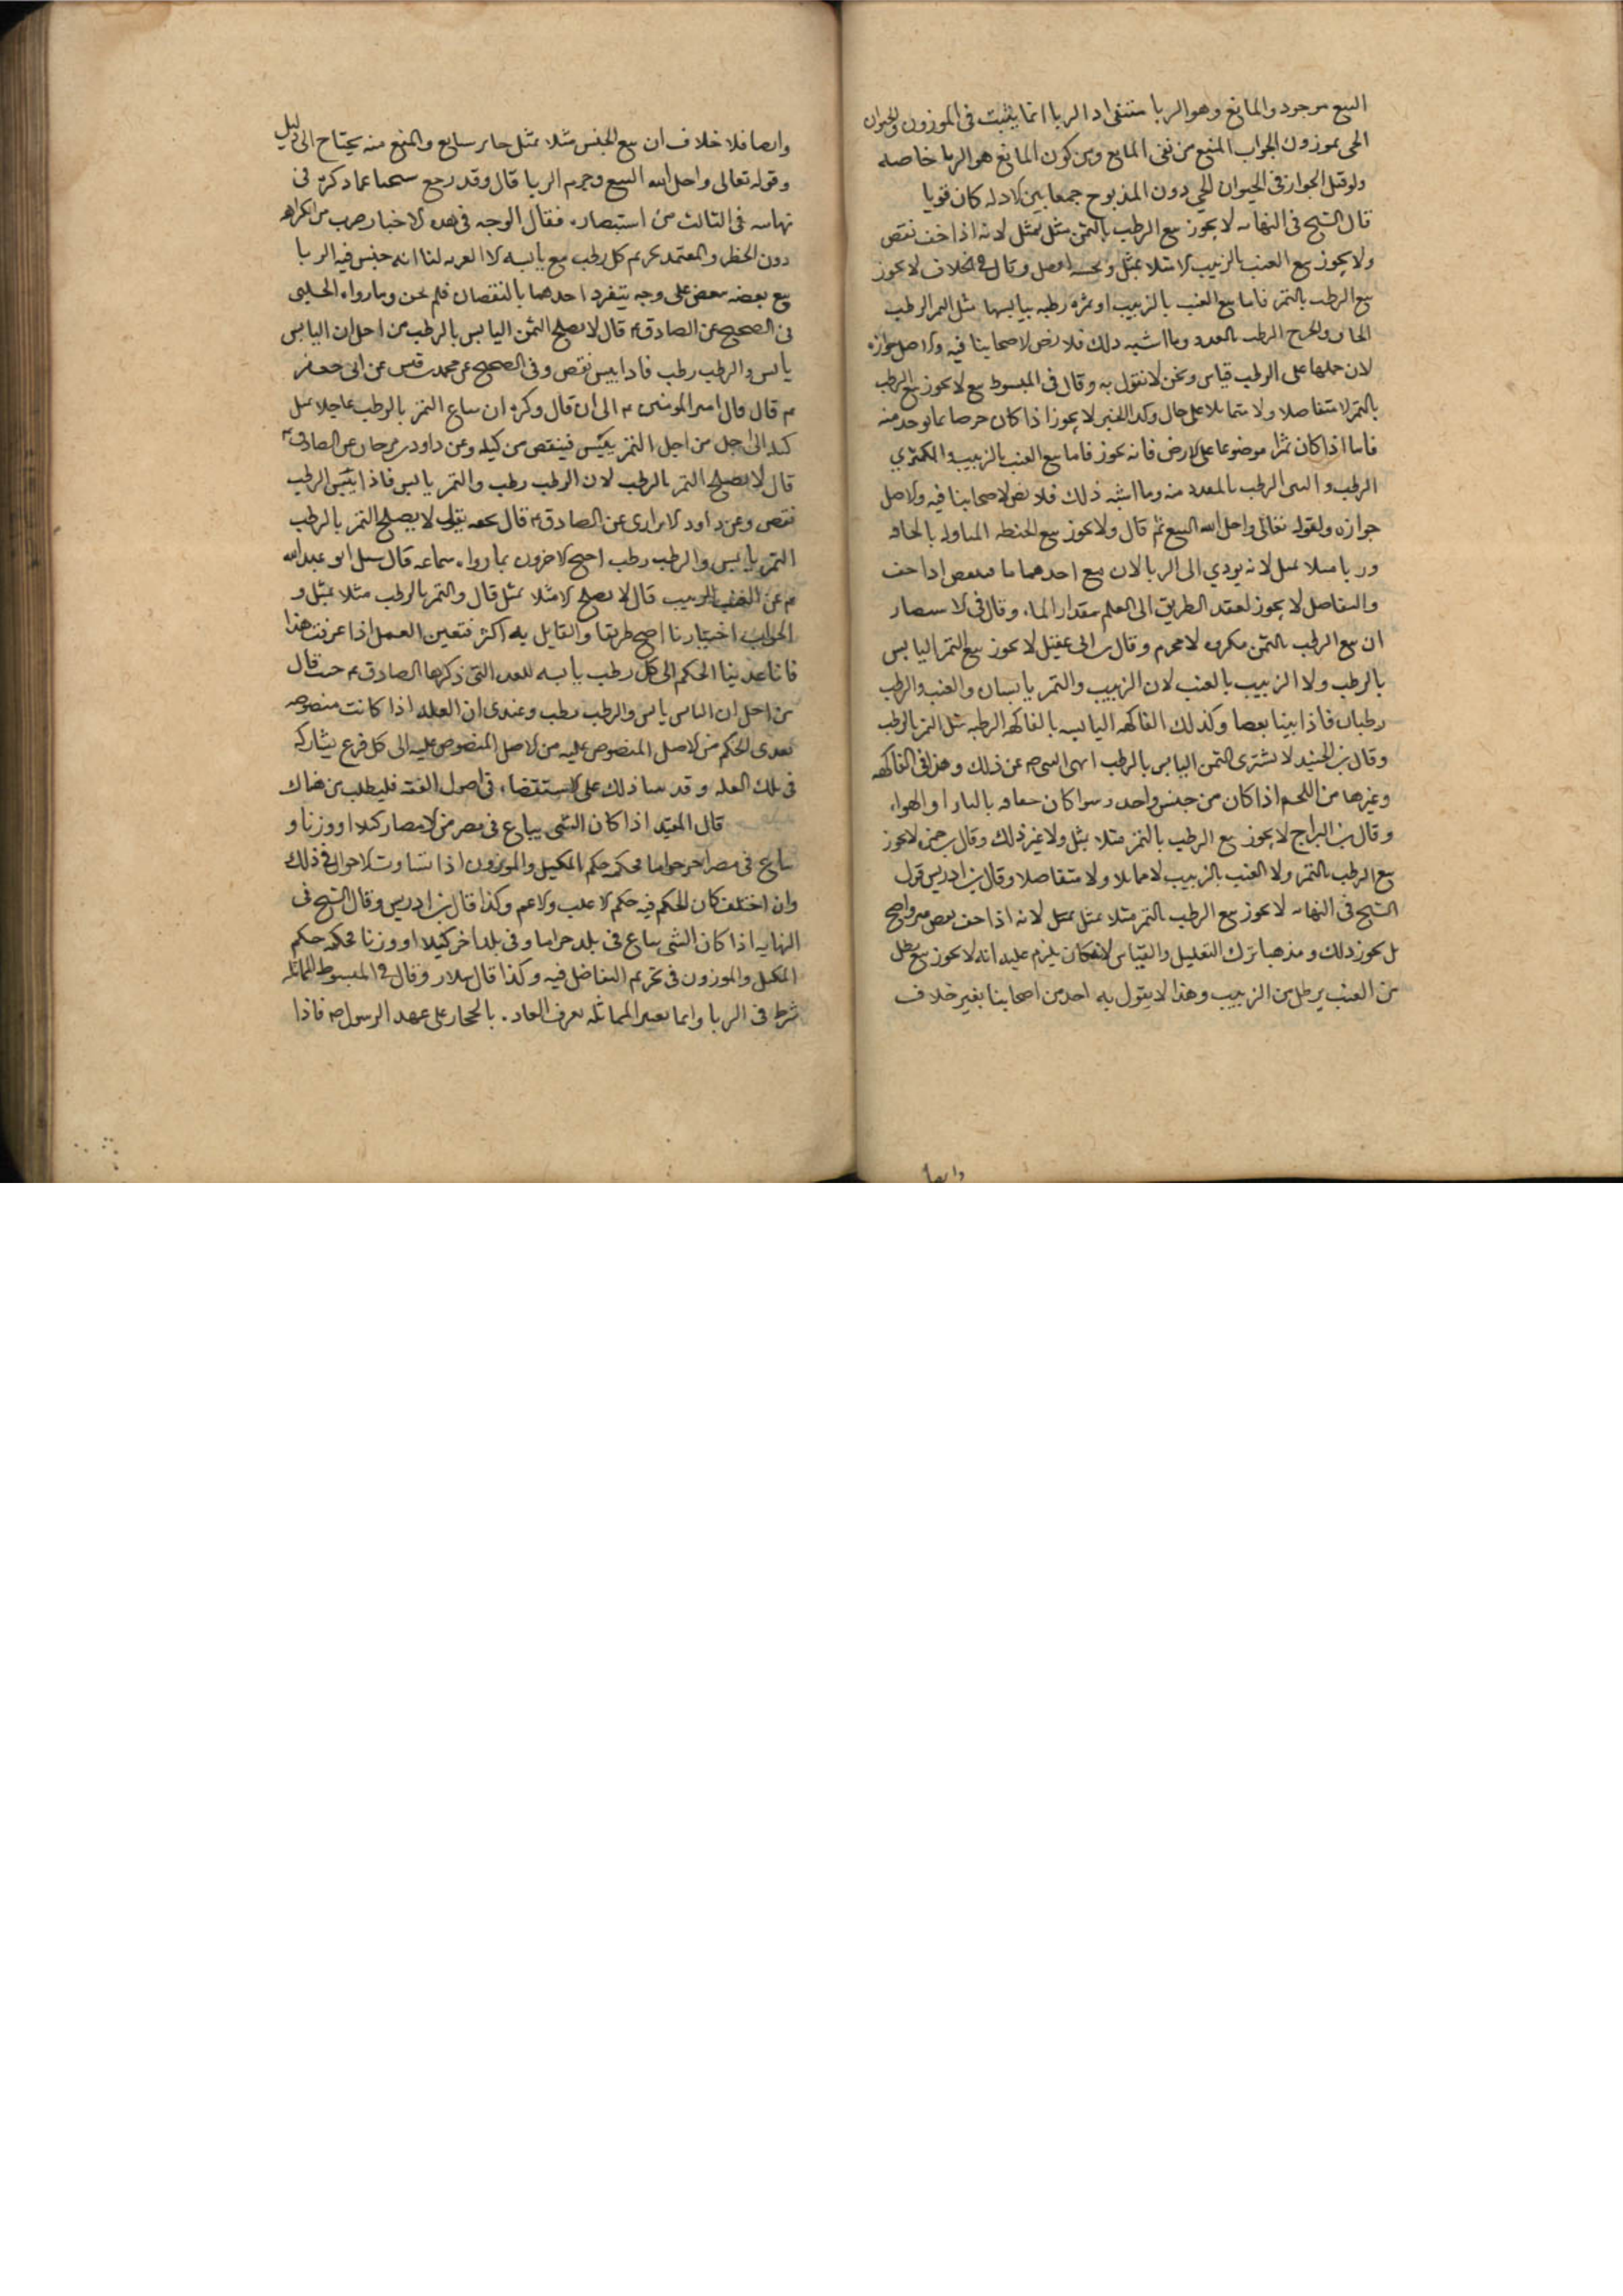 البيع موجود والمانع وهو الربا منتفى اد الربا انما يثبت فى الموزون والحيوان
الحى بموزون الجواب المنع من نفى المانع ومن كون المانع هو الربا خاصه
ولو قيل الجواز فى الحيوان الحي دون المذبوح جمعا بين الادله كان قويا
قال الشيخ فى النهاىه لا يجوز بيع الرطب بالتمر مثل بمثل لانه اذا جف نقص
ولا يجوز بيع العنب بالزبيب الا مثلا بمثل وقال فى الخلاف لا يجوز
بيع الرطب بالتمر فاما بيع العنب بالزبيب او ثمره رطبه بيابسها مثل التمر الرطب
الرطب بالمقدد وما اشبه ذلك فلا نص لاصحابنا فيه والاصل جوازه
لان حملها على الرطب قياس ونحن لا نقول به وقال فى المبسوط بيع لا يجوز بيع الرطب
بالتمر لا متفاضلا ولا متماثلا على حال وكذا الخبر لا يجوز اذا كان خرصا مما يوخد منه
فاما اذا كان تمرا موضوعا على الارض فانه يجوز فاما بيع العنب بالزبيب والكمثري
الرطب و الرطب بالمقدد منه وما اشبه ذلك فلا نص لاصحابنا فيه والاصل
جوازه ولقوله تعالى واحل الله البيع ثم قال ولا يجوز بيع الحنطه المبلوله بالجافه
وزنا مثلا بمثل لانه يودي الى الربا لان مع احدهما ما فينقص اذا جف
والتفاضل لا يجوز لفقد الطريق الى العلم بمقدار الماء وقال فى الاستبصار
ان بيع الرطب بالتمر مكروه لا محرم وقال بن ابى عقيل لا يجوز بيع التمر اليابس
بالرطب ولا الزبيب بالعنب لان الزبيب والتمر يابسان والعنب والرطب
رطبان فاذا يبسا نقصا وكذلك الفاكهه اليابسه بالفاكهه الرطبه مثل التمر بالرطب
وقال بن الجنيد لا يشترى التمر اليابس بالرطب لنهى النبى ص عن ذلك وهذا فى الفاكهه
وغيرها من اللحم اذا كان من جنس واحد وسوا كان جفافه بالنار او الهواء
وقال بن البراج لا يجوز بيع الرطب بالتمر مثلا بمثل ولا غير ذلك وقال بن حمزه لا يجوز
بيع الرطب بالتمر ولا العنب بالزبيب لا متماثلا ولا متفاضلا وقال بن ادريس قول
الشيخ فى النهايه لا يجوز بيع الرطب بالتمر مثلا بمثل لانه اذا جف نقص غير واضح
بل يجوز ذلك ومذهبنا ترك التعليل والقياس لانه كان يلزم عليه انه لا يجوز بيع رطل
من العنب برطل من الزبيب وهذا لا يقول به احد من اصحابنا بغير خلاف
وايضا
وايضا فلا خلاف ان بيع الجنس مثلا بمثل جايز سايغ والمنع منه يحتاج الى دليل
وقوله تعالى واحل الله البيع وحرم الربا قال وقد رجع شيخنا عما ذكره فى
نهايته فى الثالث من استبصاره فقال الوجه فى هذه الاخبار ضرب من الكراهه
دون الحظر والمعتمد تحريم كل رطب مع يابسه الا العريه لنا انه جنس فيه الربا
بيع بعضه ببعض على وجه يتفرد احدهما بالنقصان فلم يجز وما رواه الحلبى
فى الصحيح عن الصادق ع قال لا يصلح التمر اليابس بالرطب من اجل ان اليابس
يابس والرطب رطب فاذا يبس نقص وفى الصحيح عن محمد بن قيس عن ابى جعفر
ع قال قال امير المومنين ع الى ان قال وكره ان يباع التمر بالرطب عاجلا بمثل
كيله الى اجل من اجل التمر ييبس فينقص من كيله وعن داود بن سرحان عن الصادق ع
قال لا يصلح التمر بالرطب لان الرطب رطب والتمر يابس فاذا يبس الرطب
نقص وعن داود الابزارى عن الصادق ع قال سمعته يقول لا يصلح التمر بالرطب
التمر يابس والرطب رطب احتج الاخرون بما رواه سماعه قال سئل ابو عبد الله
ع عن العنب بالزبيب قال لا يصلح الا مثلا بمثل قال والتمر بالرطب مثلا بمثل و
الجواب اخبارنا اصح طريقا والقايل به اكثر فتعين العمل اذا عرفت هذا
فانا عدينا الحكم الى كل رطب يابسه للعله التى ذكرها الصادق ع حيث قال
من اجل ان اليابس يابس والرطب رطب وعندى ان العله اذا كانت منصوصه
تعدى الحكم من الاصل المنصوص عليه من الاصل المنصوص عليه الى كل فرع يشاركه
فى تلك العله وقد بينا ذلك على الاستقضاء فى اصول الفقه فليطلب من هناك
قال المفيد اذا كان الشى يباع فى مصر من الامصار كيلا او وزنا و
يباع فى مصر اخر جزافا فحكمه حكم المكيل والموزون اذا تساوت الاحوال فى ذلك
وان اختلف كان الحكم فيه حكم الاغلب والاعم وكذا قال بن ادريس وقال الشيخ فى
النهايه اذا كان الشى يباع فى بلد جزافا وفى بلد اخر كيلا او وزنا فحكمه حكم
المكيل والموزون فى تحريم التفاضل فيه وكذا قال سلار وقال فى المبسوط المماثله
شرط فى الربا وانما يعتبر المماثله بعرف العاده بالحجاز على عهد الرسول ص فاذا